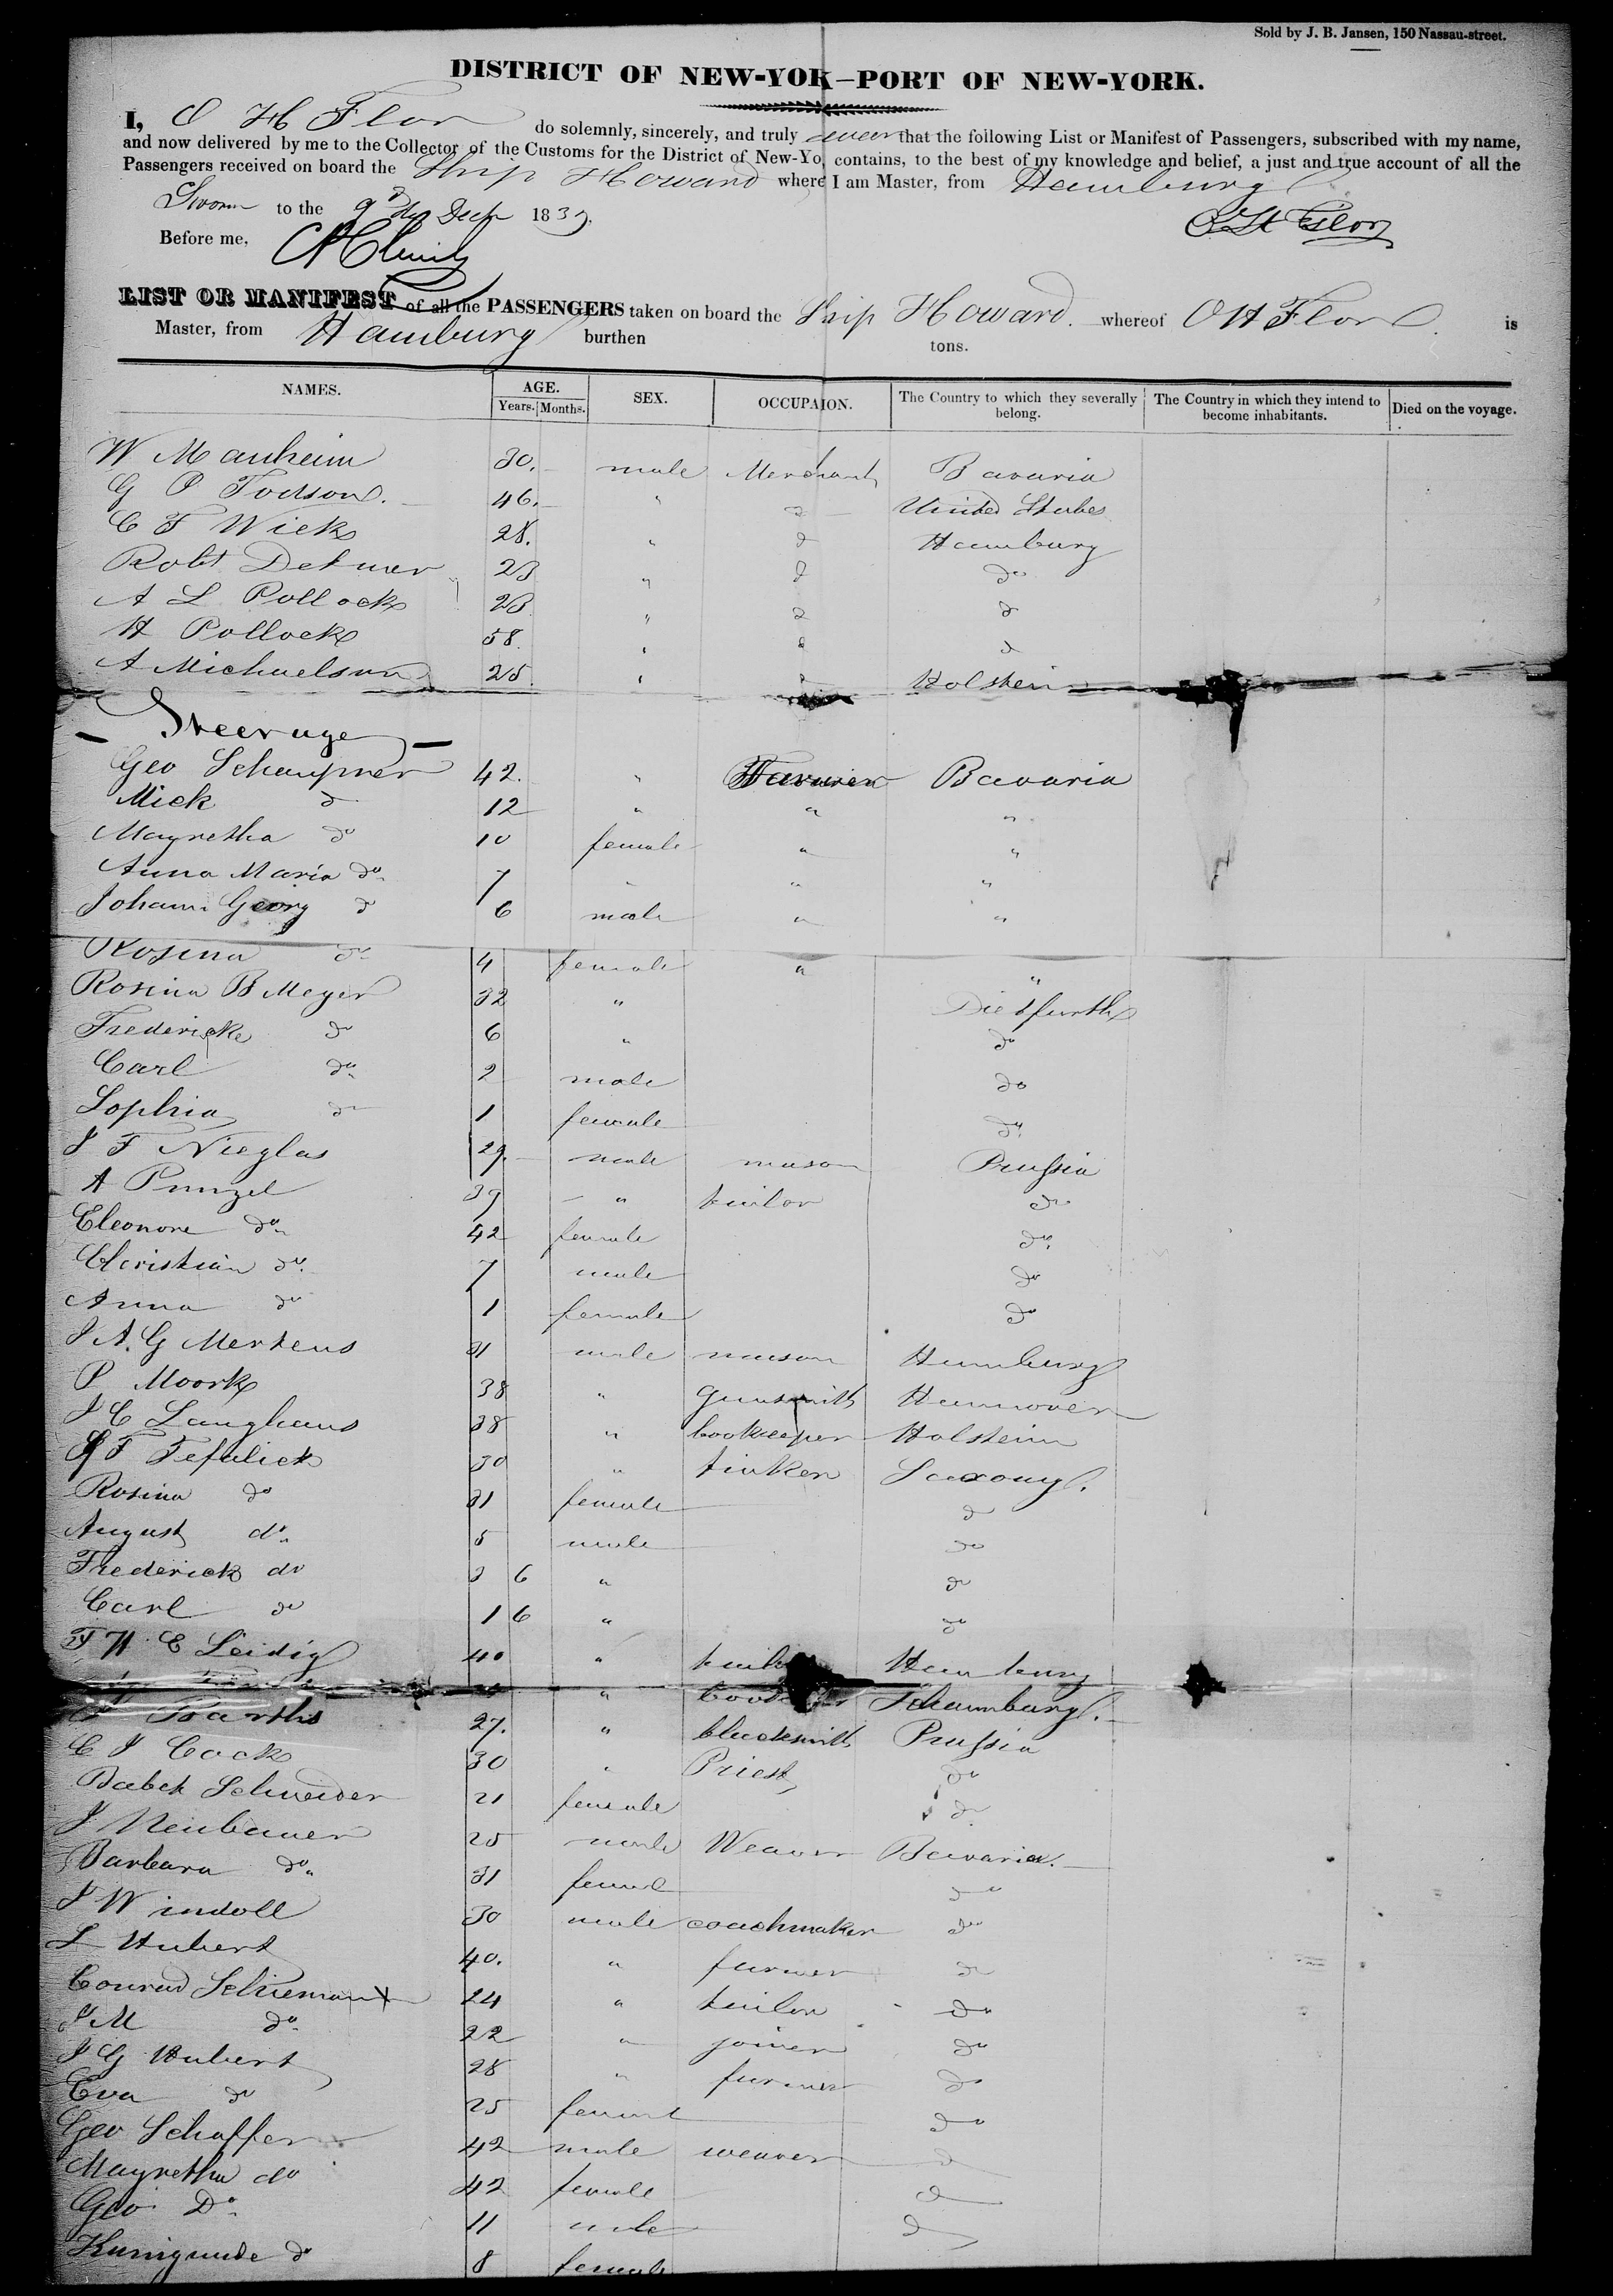 Sold by J. B. Jansen, 150 Nassau-street.
DISTRICT OF NEW-YOK—PORT OF NEW-YORK.
I, O H Flor do solemnly, sincerely, and truly swear that the following List or Manifest of Passengers, subscribed with my name,
and now delivered by me to the Collector of the Customs for the District of New-Yo contains, to the best of my knowledge and belief, a just and true account of all the
Passengers received on board the Ship Howard where I am Master, from Hamburg
Sworn to the 9th Decr 1839.
O H Flor
Before me,
LIST OR MANIFEST of all the PASSENGERS taken on board the Ship Howard. whereof O H Flor is
Master, from Hamburg burthen tons.
NAMES. AGE. Years. Months. SEX. OCCUPAION. The Country to which they severally belong. The Country in which they intend to become inhabitants. Died on the voyage.
W Manheim 30. male Merchant Bavaria
G P Todson. 46. " do United States
C F Wick 28. " do Hamburg
Robt Detmer 23 " do do
A L Pollock 23 " do do
H Pollock 58. " do do
A Michaelson 25. " do Holstein
Steerage
Geo Schaupner 42. " Farmer Bavaria
Mick do 12 " " "
Magretha do 10 female " "
Anna Maria do 7 " " "
Johann Georg do 6 male " "
Rosina do 4 female " "
Rosina B Meyer 32 " Dietfurth
Fredericke do 6 " do
Carl do 2 male do
Sophia do 1 female do
J F Nieglas 29. male mason Prussia
A Punzel 39 " tailor do
Eleonore do 42 female do
Christian do 7 male do
Anna do 1 female do
J A. G Mertens 31 male mason Hamburg
P Moork 38 " gunsmith Hannover
J C Langhans 38 " bookeeper Holstein
F Tefulick 30 " tinker Saxony.
Rosina do 31 female do
August do 5 male do
Frederick do 3 6 " do
Carl do 1 6 " do
F W E Leidig 40 " Hamburg
" Schaumburg.
Barths 27. " blacksmith Prussia
C J Cock 30 " Priest do
Babet Schneider 21 female do
J Neubauer 25 male Weaver Bavaria.
Barbara do 31 female do
J Windoll 30 male coachmaker do
L Hubert 40. " farmer do
Conrad Schiemann 24 " tailor do
J M do 22 " joiner do
J G Hubert 28 " farmer do
Eva do 25 female do
Geo Schaffer 42 male weaver do
Magretha do 42 female do
Geo Do 11 male do
Kunigunde do 8 female